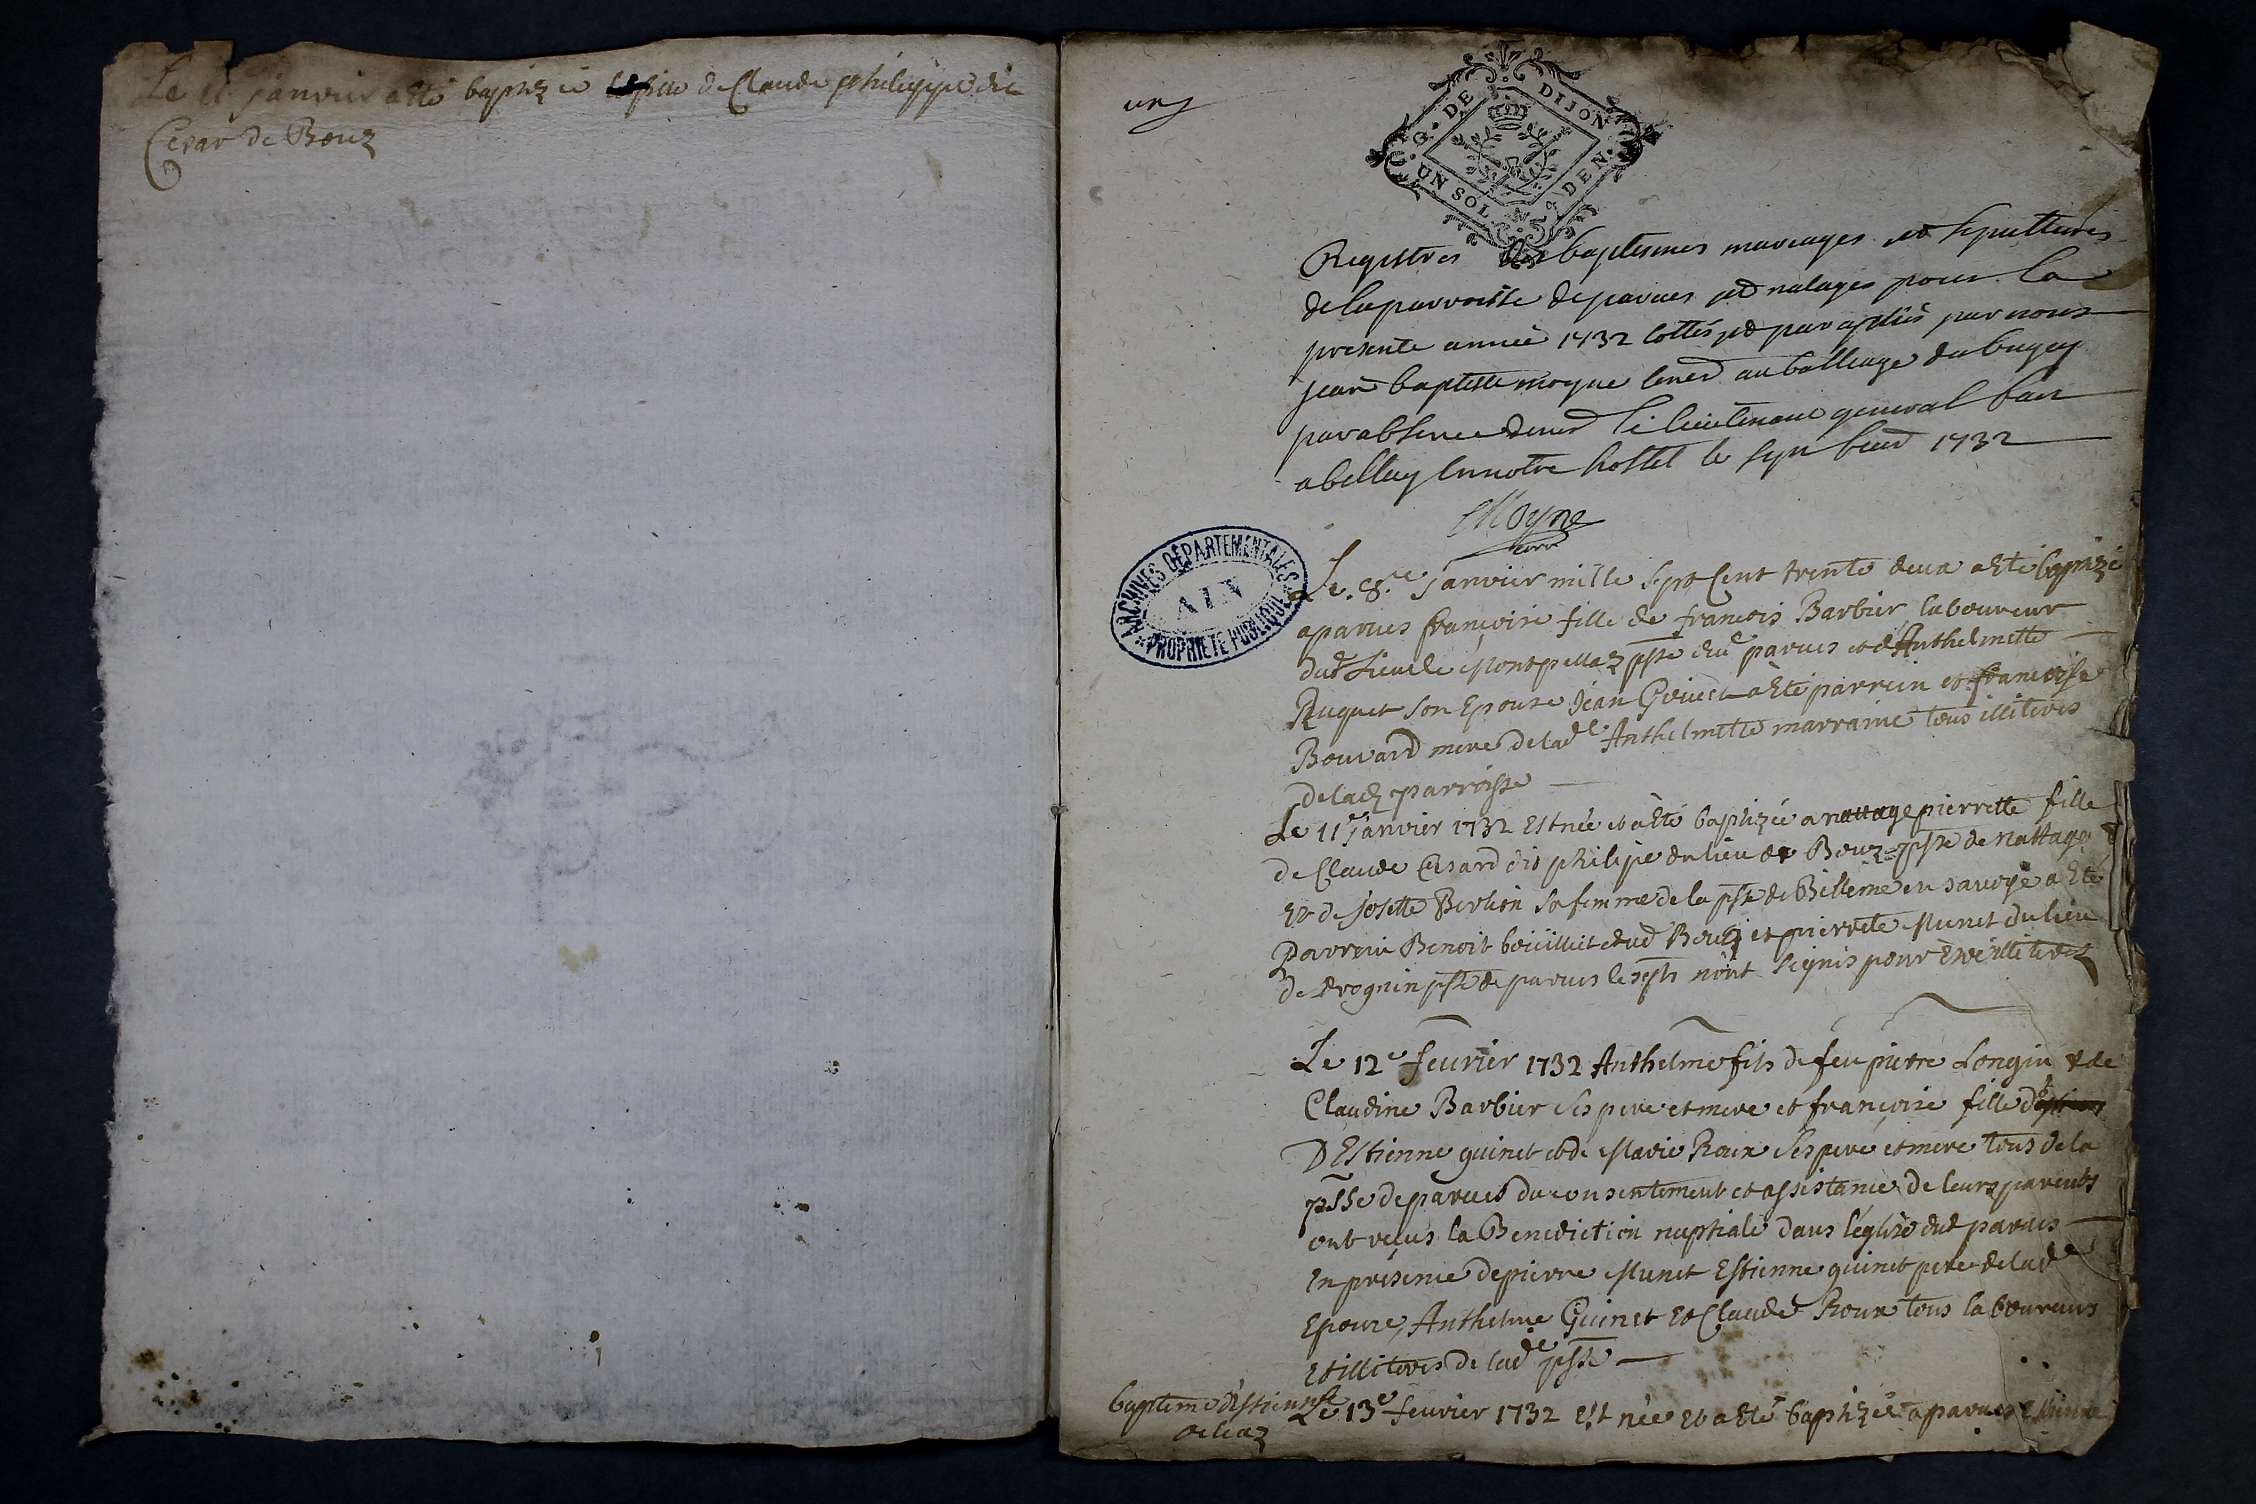 Le 11e janvier a esté baptizée la fille de Claude philippe dit
Cesar de Bouz
un
G. DE DIJON
UN SOL. DEN.
Registres des baptesmes mariages et sepultures
de la parroisse de parves et natages pour la
presente année 1732 cottés et paraphés par nous
jean baptiste moyne au balliage du bugey
par absence de le lieutenant general fait
a belley en notre hostel le 1732
Moyne
ARCHIVES DÉPARTEMENTALES
AIN
PROPRIÉTÉ PUBLIQUE
Le 8e janvier mille sept cent trente deux a esté baptizé
a parves françoise fille de francois Barbier laboureur
du lieu de Montpellaz psse dud parves et d'Anthelmette
Ruquet son Epouse Jean Goiuet a esté parrein et françoise
Bouvard mere de lade Anthelmette marraine tous illiterés
de lad parroisse
Le 11e janvier 1732 est née et a esté baptizée a nattage pierrette fille
de Claude Cesard dit philipe du lieu de Bouz psse de nattage
et de josette Berlion sa femme de la psse de Billieme en savoye a esté
parrein Benoit boüillet dud Bouz et pierrette Munet du lieu
de Sorgnin psse de parves lesqls n'ont signés pour estre illiterez
Le 12e feuvrier 1732 Anthelme fils de feu pierre Longin & de
Claudine Barbier ses pere et mere et françoise fille
D'Estienne guinet et de Marie Roux ses pere et mere tous de la
psse de parves du consentement et assistance de leurs parents
ont reçus la Benediction nuptiale dans l'eglise dud parves
en presence de pierre Munet Estienne guinet pere de lade
Epouze, Anthelme Guinet et Claude Roux tous laboureurs
et illiterés de lade psse
bapteme d'Estiennete
Le 13e feuvrier 1732 est née et a esté baptizée a parves Estienne